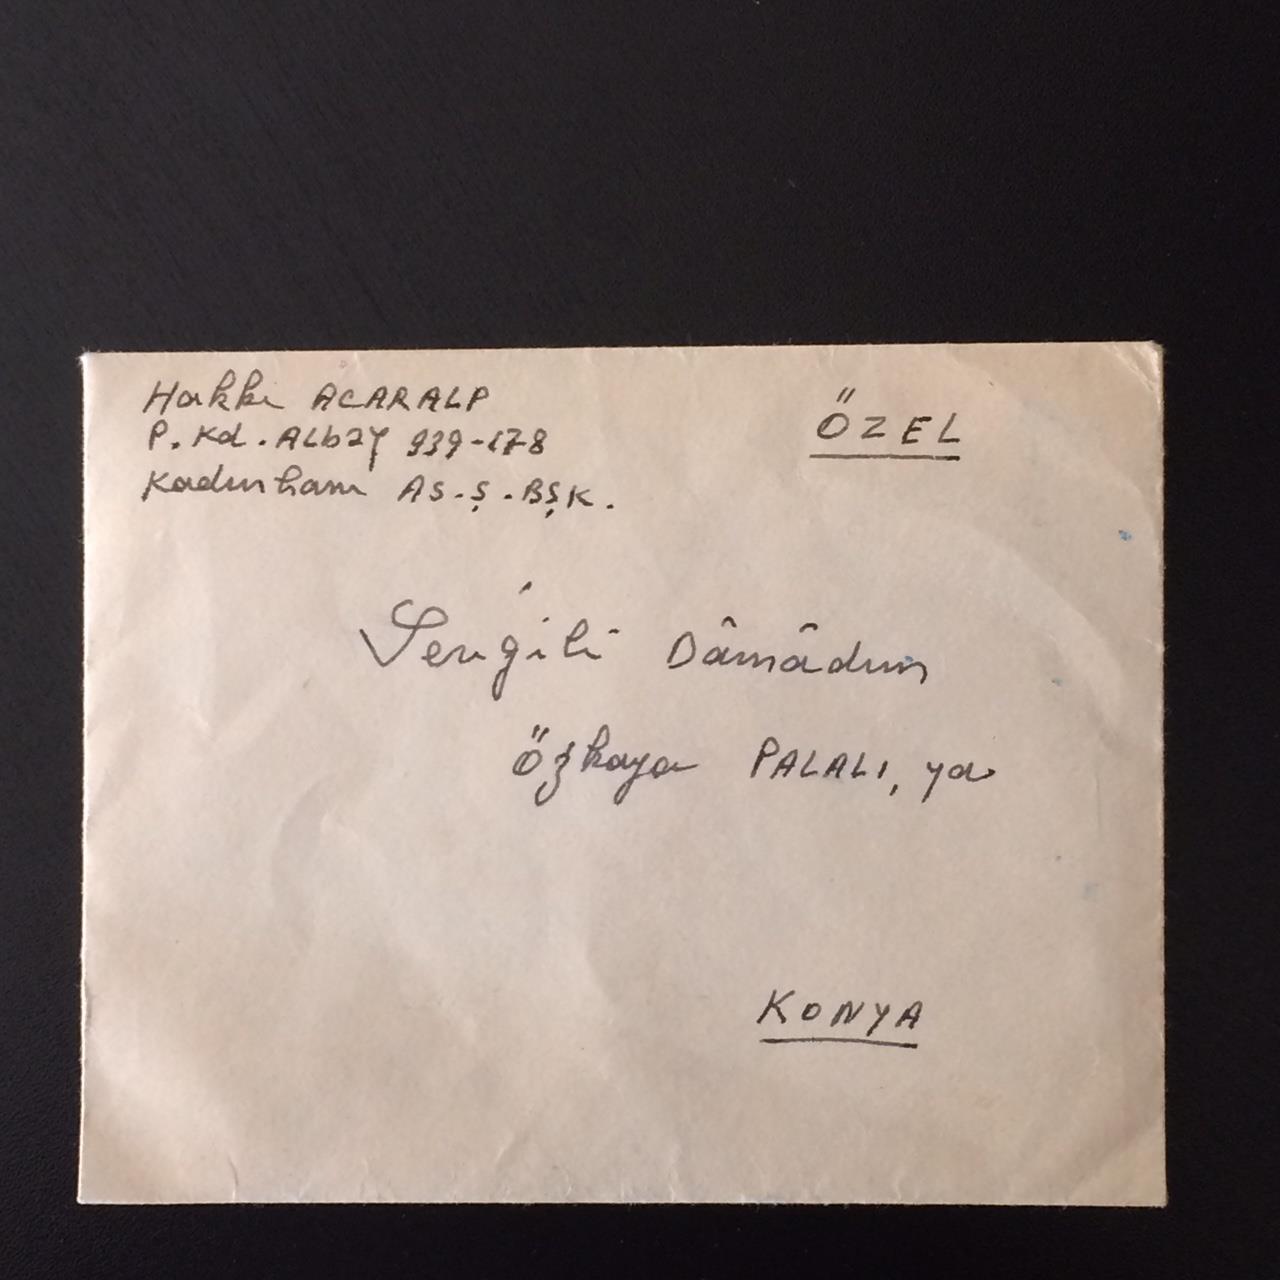 Hakkı ACARALP
P. Kd. ALbay 939-178
Kadınhanı AS. Ş. BŞK.
ÖZEL
Sevgili Dâmâdım
Özkaya PALALI, ya
KONYA